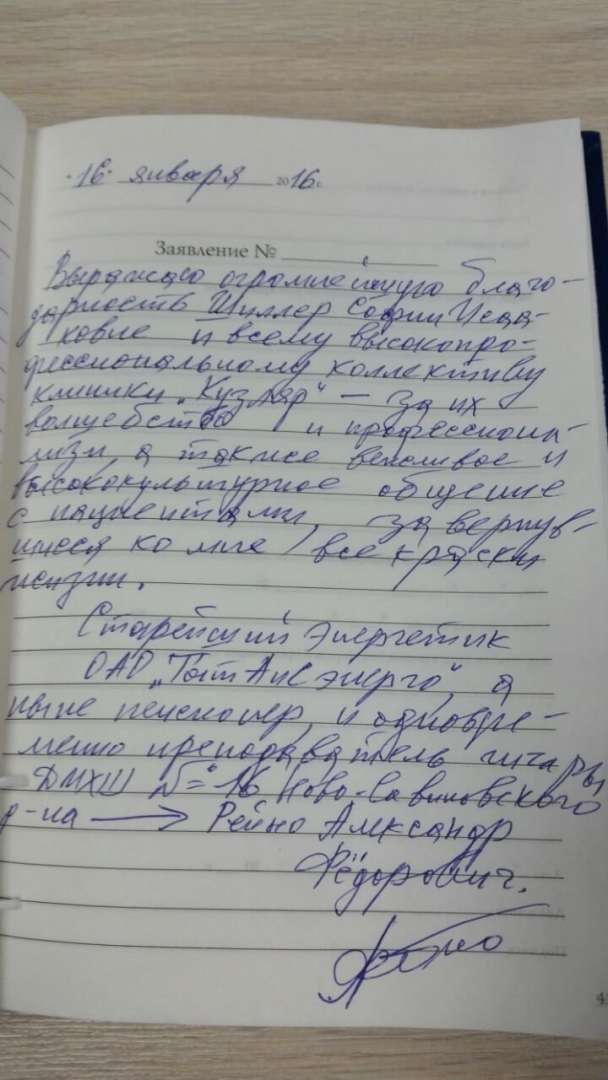 "16" января 2016 г.
Заявление №
Выражаю огромнейшую благо-
дарность Шиллер Софии Исаа-
ковне и всему высокопро-
фессиональному коллективу
клиники „Кузляр" — за их
волшебство и профессиона-
лизм, а также вежливое и
высококультурное общение
с пациентами, за вернув-
шиеся ко мне все краски
жизни.
Старейший энергетик
ОАО „ТатАИСэнерго", а
ныне пенсионер, и одновре-
менно преподаватель гитары
ДМХШ № 16 Ново-Савиновского
р-на → Рейно Александр
Фёдорович.